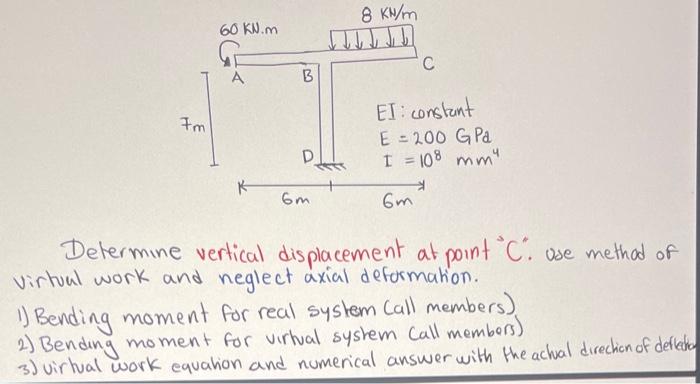 8 KN/m
60 KN.m
A
B
C
7m
EI: constant
E = 200 GPa
I = 10⁸ mm⁴
D
6m
6m
Determine vertical displacement at point "C". use method of
virtual work and neglect axial deformation.
1) Bending moment for real system (all members)
2) Bending moment for virtual system (all members)
3) virtual work equation and numerical answer with the actual direction of